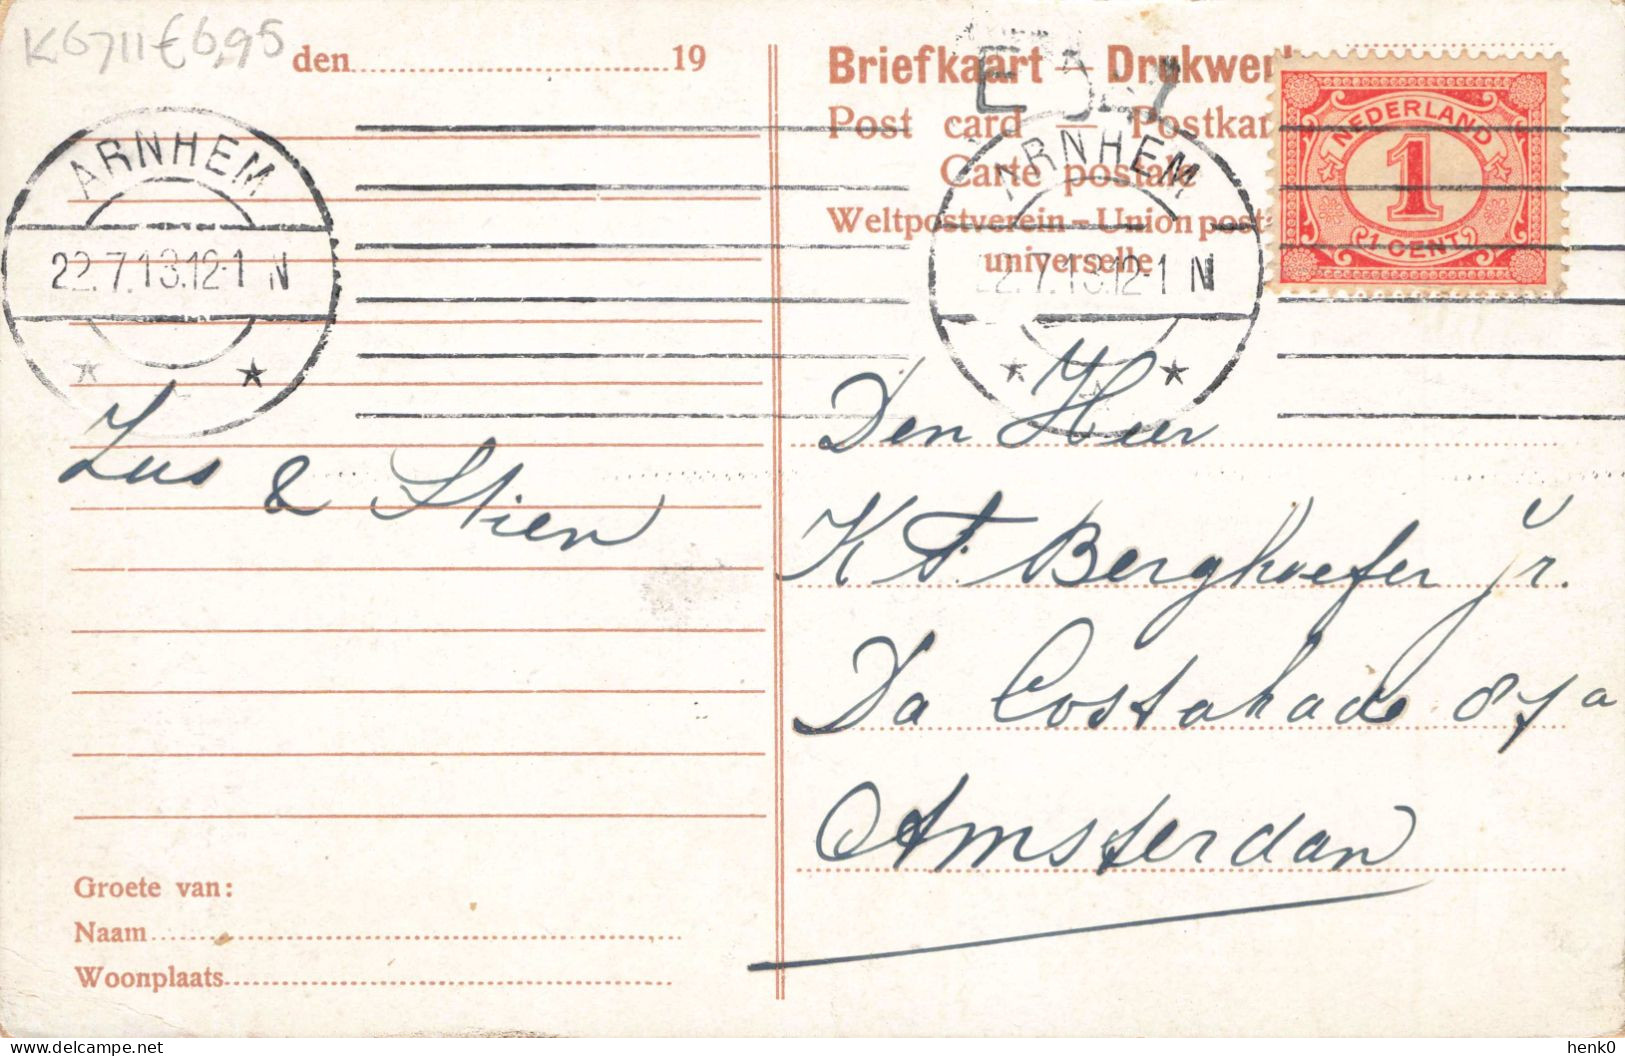 K6711 € 6,95
den 19
Briefkaart – Drukwerk
Post card — Postkar
Carte postale
Weltpostverein – Union posta
universelle.
NEDERLAND
1
1 CENT
ARNHEM
22.7.13.12-1 N
ARNHEM
22.7.13.12-1 N
Zus & Stien
Den Heer
K F. Berghoefer Jr.
Da Costakade 87a
Amsterdam
Groete van:
Naam
Woonplaats
delcampe.net
henk0